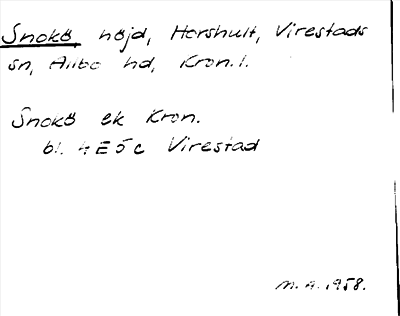 Snokö höjd, Horshult, Virestads
sn, Allbo hd, Kron.l.
Snokö ek Kron.
bl. 4E5c Virestad
M.A. 1958.